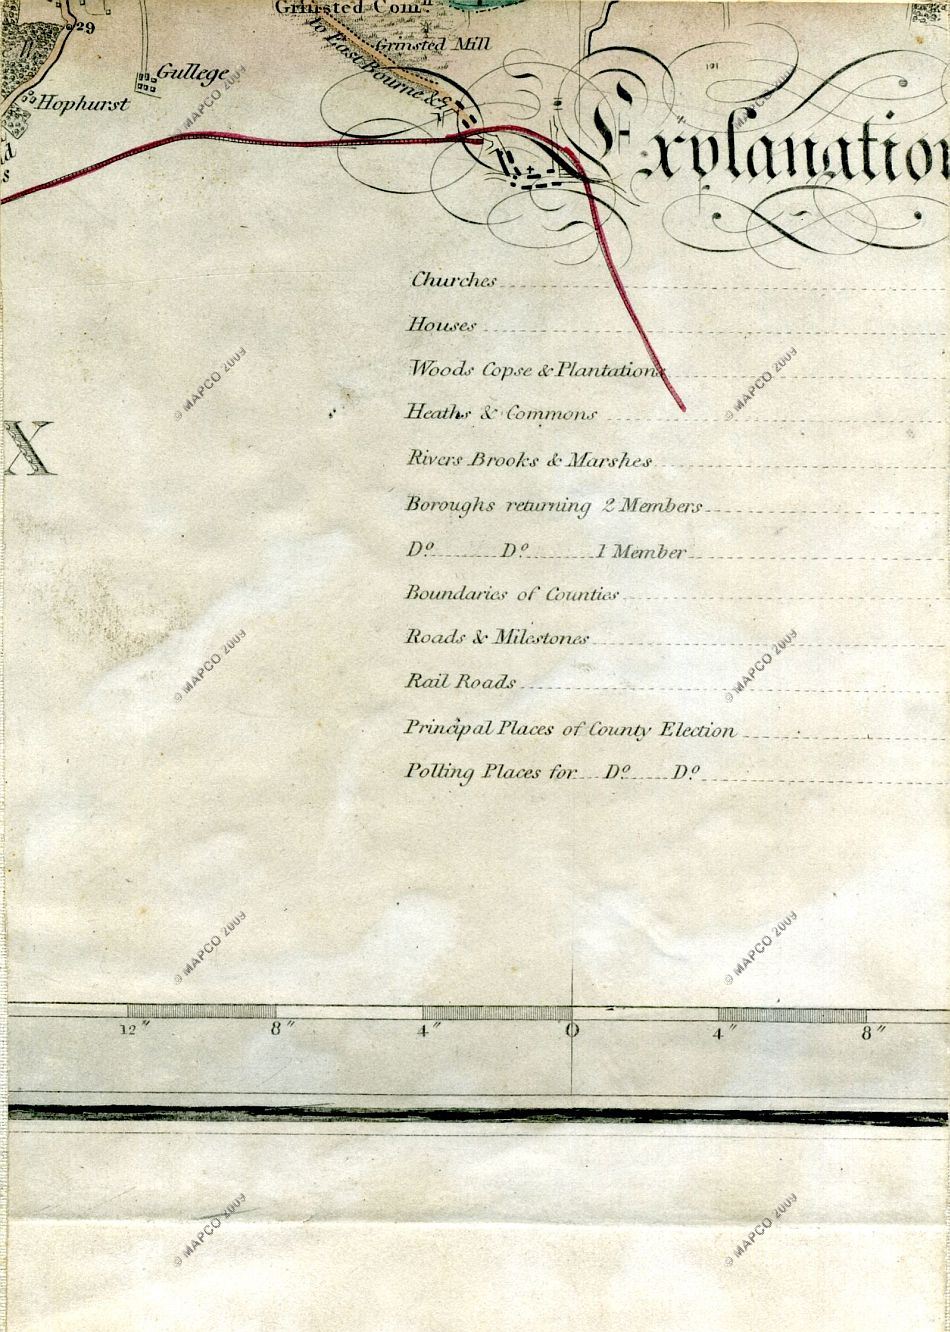 Grinsted Com.n
29
Grinsted Mill
to East Bourne &c.
Gullege
Hophurst
Explanation
X
Churches
Houses
Woods Copse & Plantations
Heaths & Commons
Rivers Brooks & Marshes
Boroughs returning 2 Members
Do. Do. 1 Member
Boundaries of Counties
Roads & Milestones
Rail Roads
Principal Places of County Election
Polling Places for Do. Do.
12" 8" 4" 0 4" 8"
© MAPCO 2009
© MAPCO 2009
© MAPCO 2009
© MAPCO 2009
© MAPCO 2009
© MAPCO 2009
© MAPCO 2009
© MAPCO 2009
© MAPCO 2009
© MAPCO 2009